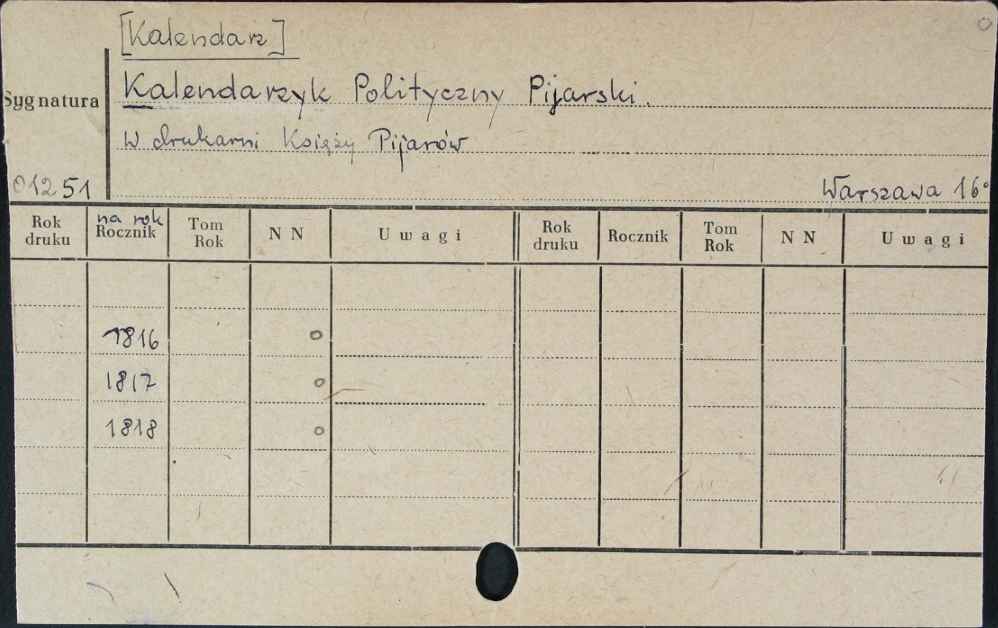 [Kalendarz]
Kalendarzyk Polityczny Pijarski.
Sygnatura
w drukarni Księży Pijarów
01251
Warszawa 16°
Rok druku
na rok
Rocznik
Tom Rok
N N
Uwagi
Rok druku
Rocznik
Tom Rok
N N
Uwagi
1816 o
1817 o
1818 o